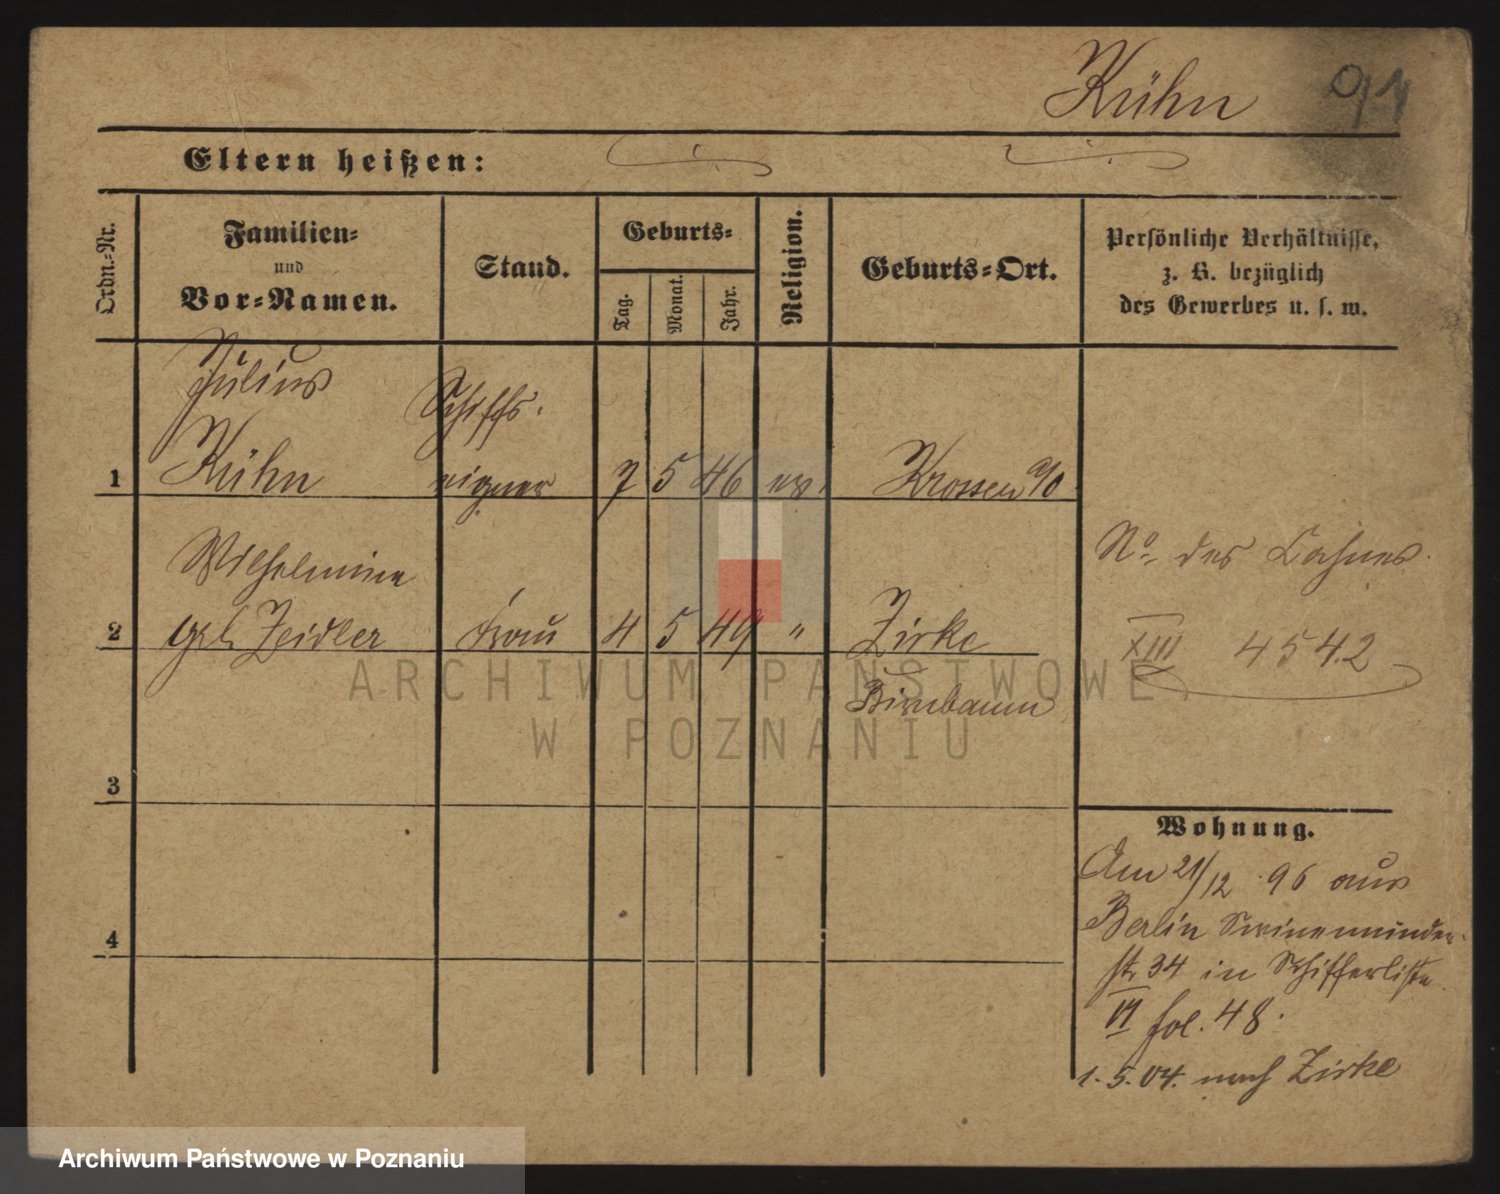 Kühn 91
Eltern heißen:
Ordn.-Nr.
Familien-
und
Vor-Namen.
Stand.
Geburts-
Tag.
Monat.
Jahr.
Religion.
Geburts-Ort.
Persönliche Verhältnisse,
z. B. bezüglich
des Gewerbes u. s. w.
Julius Schiffs-
1 Kühn eigner 7 5 46 ev. Krossen a/O
Wilhelmine
2 geb. Zeidler Frau 4 5 49 " Zirke
Birnbaum
No des Kahnes
XIII 4542
3
4
Wohnung.
Am 21/12 96 aus
Berlin Swinemünder-
str 34 in Schifferliste
VI fol. 48.
1.5.04. nach Zirke
ARCHIWUM PAŃSTWOWE
W POZNANIU
Archiwum Państwowe w Poznaniu